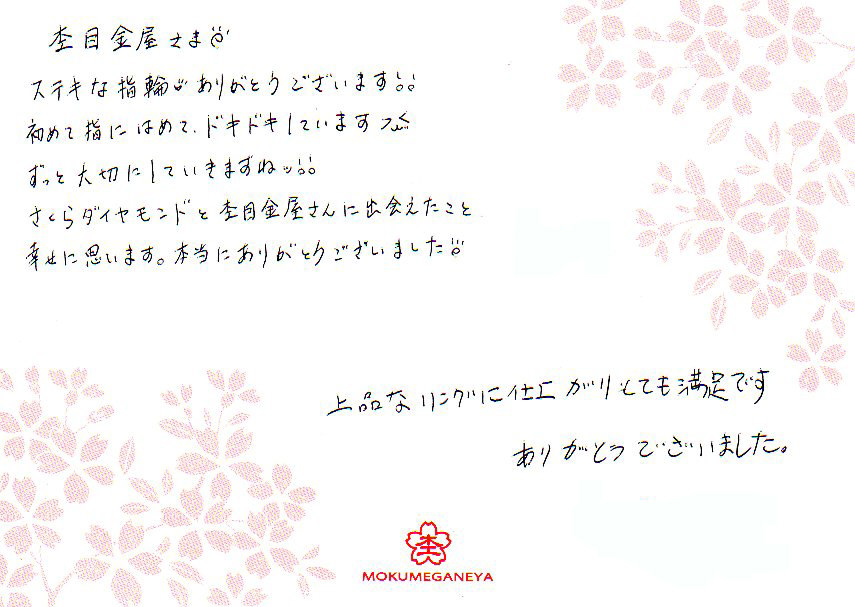 杢目金屋さま
ステキな指輪ありがとうございます!!
初めて指にはめて、ドキドキしています
ずっと大切にしていきますねッ!!
さくらダイヤモンドと杢目金屋さんに出会えたこと
幸せに思います。本当にありがとうございました!!
上品なリングに仕上がりとても満足です
ありがとうございました。
杢
MOKUMEGANEYA